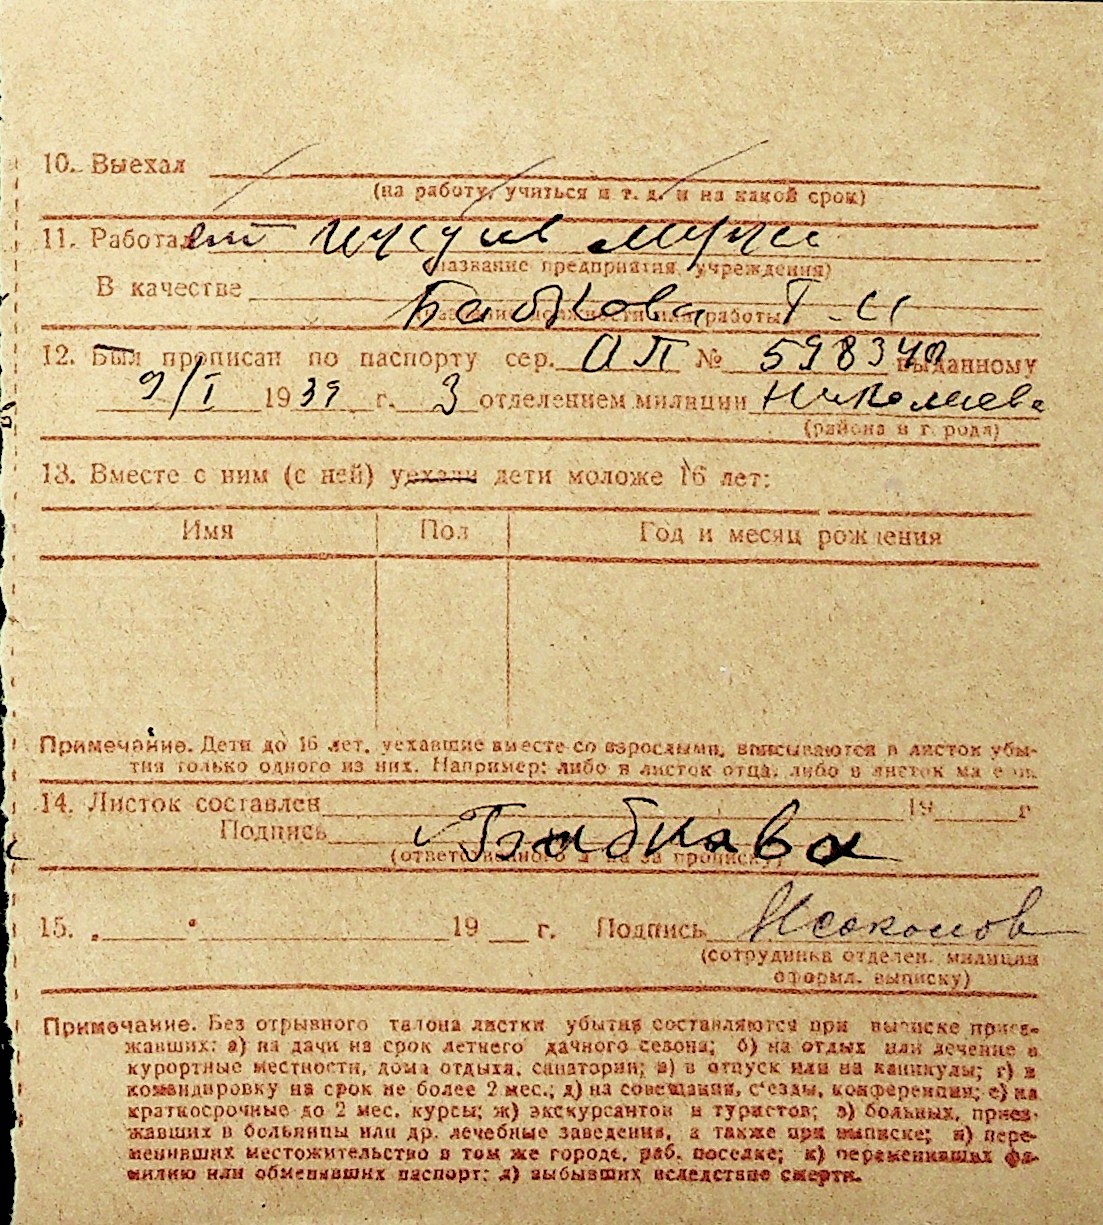 10. Выехал
(на работу, учиться и т. д. и на какой срок)
11. Работал
(название предприятия, учреждения)
В качестве Бабкова Т-И
12. Был прописан по паспорту сер. ОП № 598340 выданному
9/I 1939 г. 3 отделением милиции Николаева
(района и города)
13. Вместе с ним (с ней) уехали дети моложе 16 лет:
Имя Пол Год и месяц рождения
Примечание. Дети до 16 лет, уехавшие вместе со взрослыми, вписываются в листок убы-
тия только одного из них. Например: либо в листок отца, либо в листок матери.
14. Листок составлен 19 г
Подпись Бабкова
(ответственного за прописку)
15. „ " 19 г. Подпись Соколов
(сотрудника отделен. милиции
оформл. выписку)
Примечание. Без отрывного талона листки убытия составляются при выписке приез-
жавших: а) на дачи на срок летнего дачного сезона; б) на отдых или лечение в
курортные местности, дома отдыха, санатории; в) в отпуск или на каникулы; г) в
командировку на срок не более 2 мес.; д) на совещания, с'езды, конференции; е) на
краткосрочные до 2 мес. курсы; ж) экскурсантов и туристов; з) больных, приез-
жавших в больницы или др. лечебные заведения, а также при выписке; и) пере-
менивших местожительство в том же городе, раб. поселке; к) переменивших фа-
милию или обменявших паспорт; л) выбывших вследствие смерти.